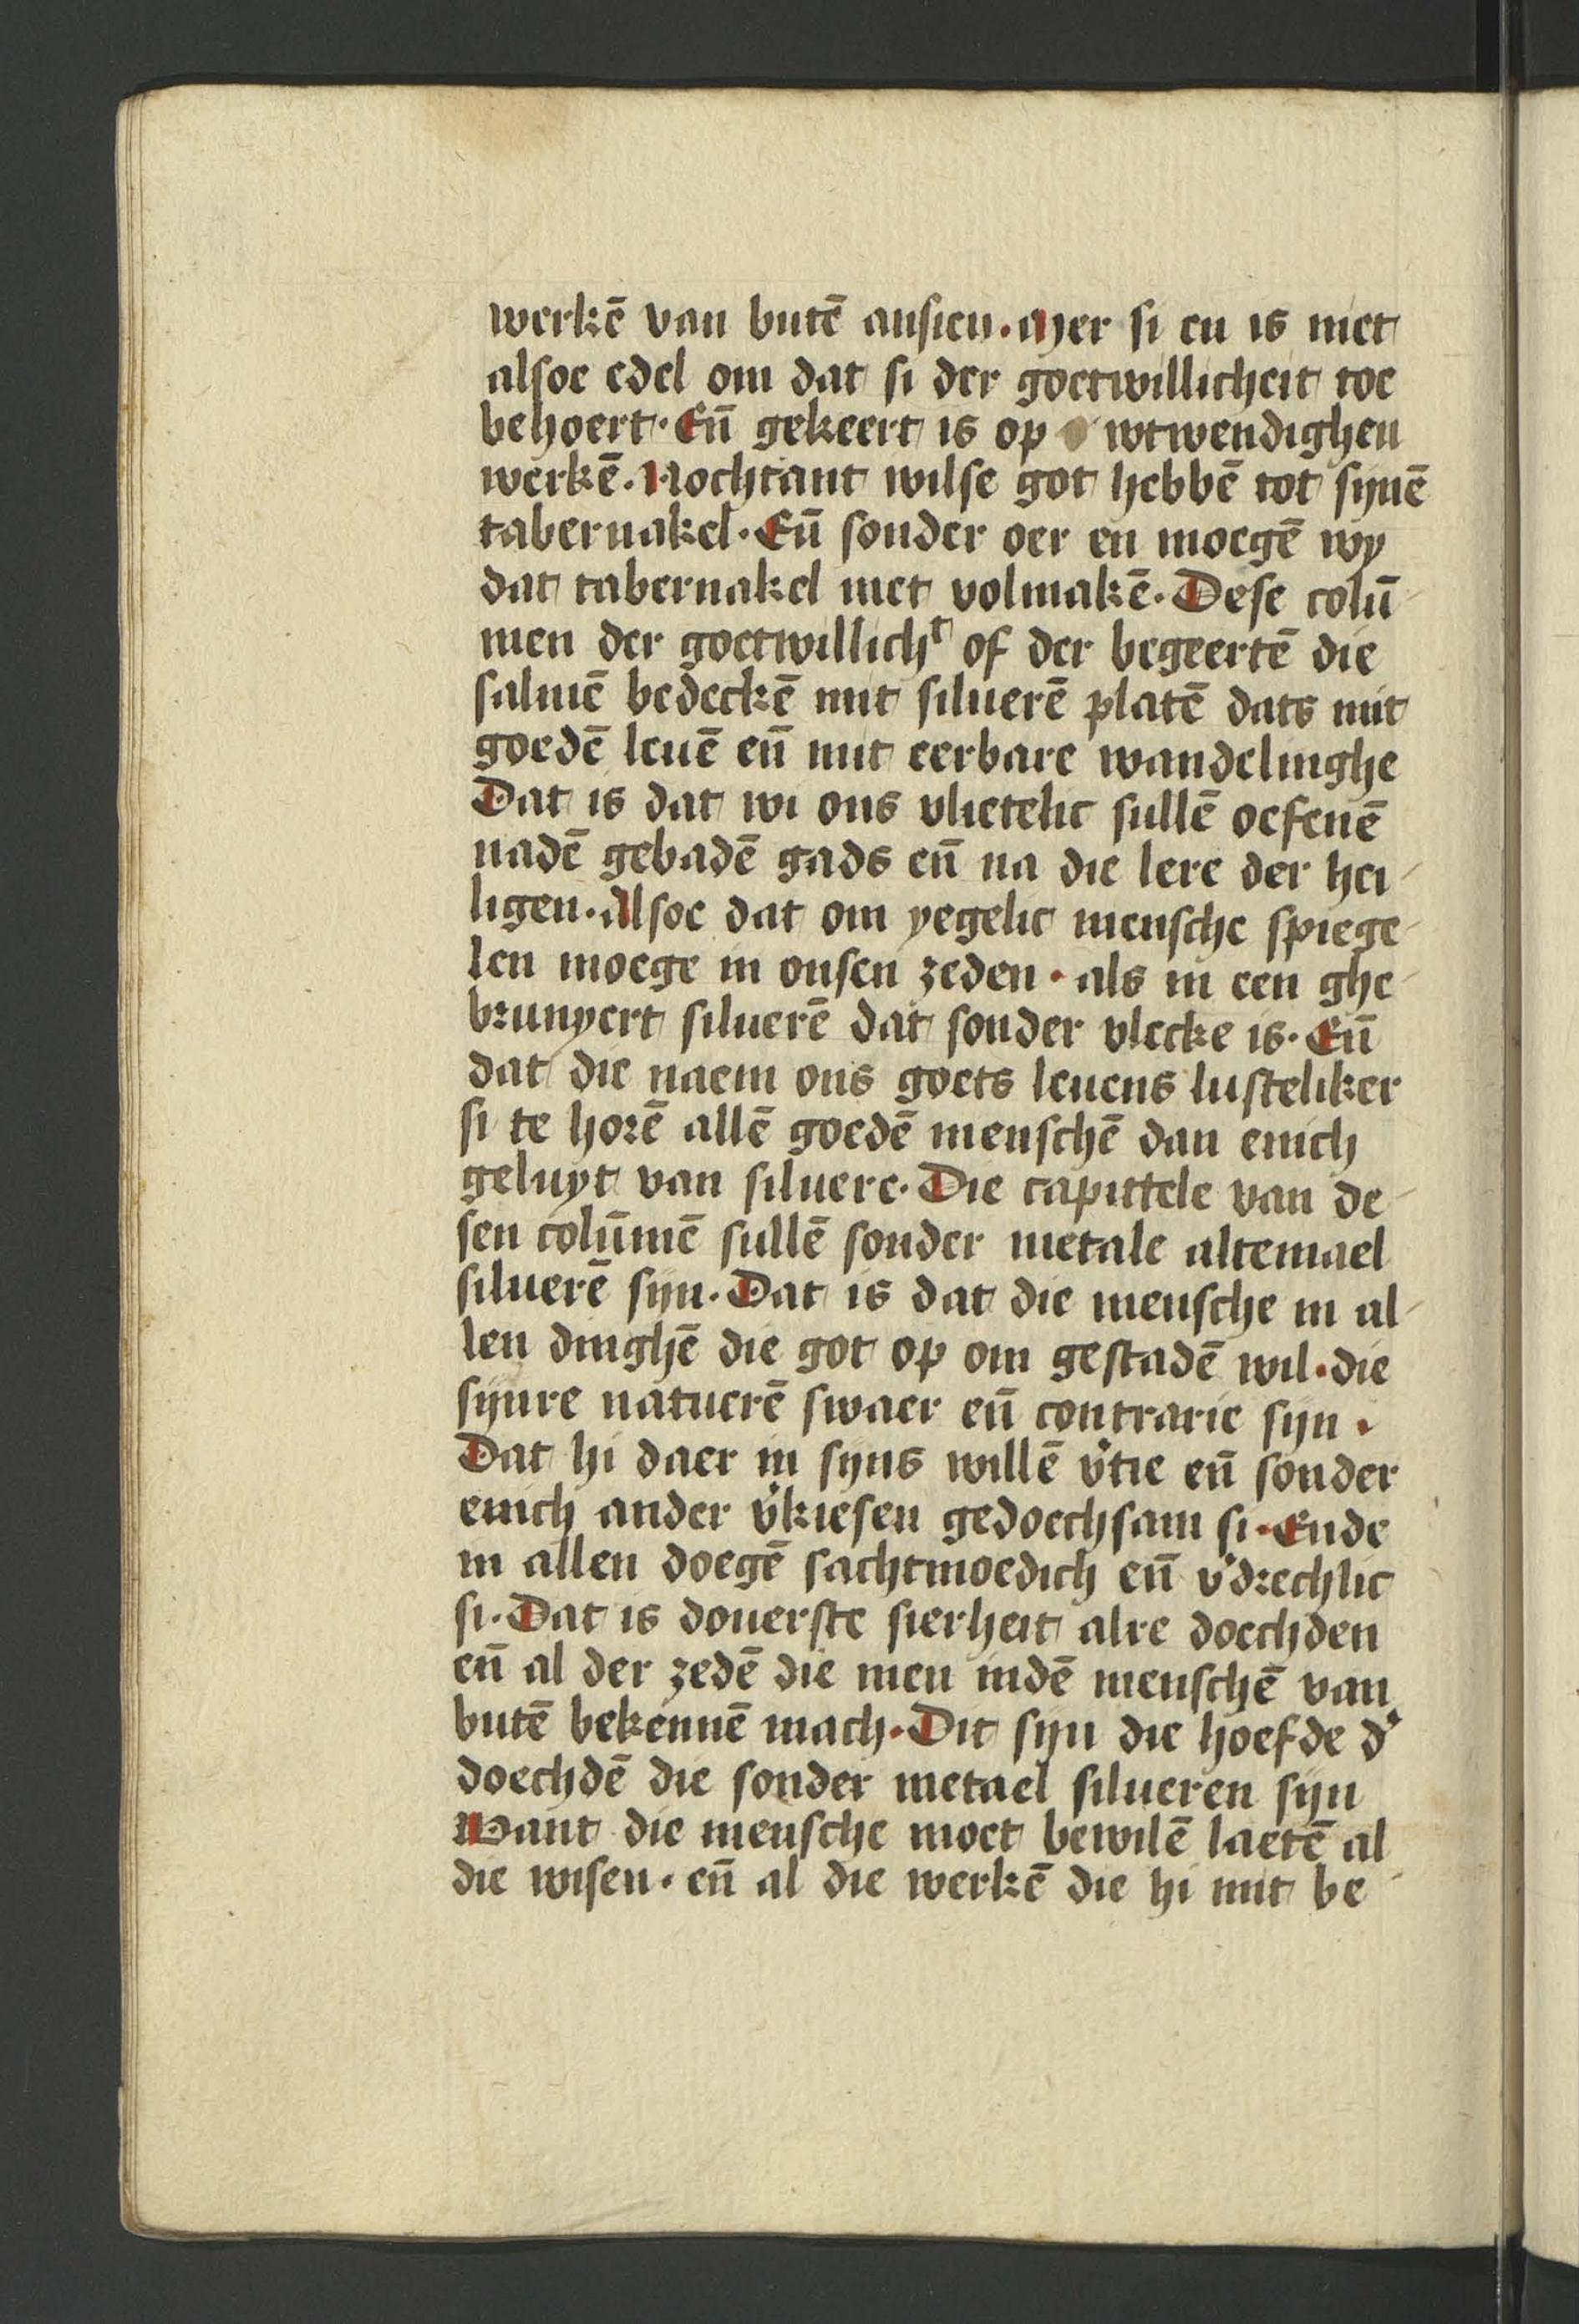 werkē van butē ansien. Mer si en is niet
alsoe edel om dat si der goetwillicheit toe
behoert. Eñ gekeert is op wtwendighen
werkē. Nochtant wilse got hebbē tot synē
tabernakel. Eñ sonder oer en moegē wy
dat tabernakel niet volmakē. Dese colū
men der goetwillichᵗ of der begeertē die
salmē bedeckē mit siluerē platē dats mit
goedē leuē eñ mit eerbare wandelinghe
Dat is dat wi ons vlietelic sullē oefenē
nadē gebadē gads eñ na die lere der hei
ligen. Alsoe dat om yegelic mensche spiege
len moege in onsen zeden. als in een ghe
brunyert siluerē dat sonder vlecke is. Eñ
dat die naem ons goets leuens lusteliker
si te horē allē goedē menschē dan enich
geluyt van siluere. Die capittele van de
sen colūmē sullē sonder metale altemael
siluerē sijn. Dat is dat die mensche in al
len dinghē die got op om gestadē wil. die
sijnre natuerē swaer eñ contrarie sijn.
Dat hi daer in sijns willē v̓tie eñ sonder
enich ander v̓kiesen gedoechsam si. Ende
in allen doegē sachtmoedich eñ v̓drechlic
si. Dat is douerste sierheit alre doechden
eñ al der zedē die men indē menschē van
butē bekennē mach. Dit sijn die hoefde d̓
doechdē die sonder metael silueren sijn
Want die mensche moet bewilē laetē al
die wisen. eñ al die werkē die hi mit be